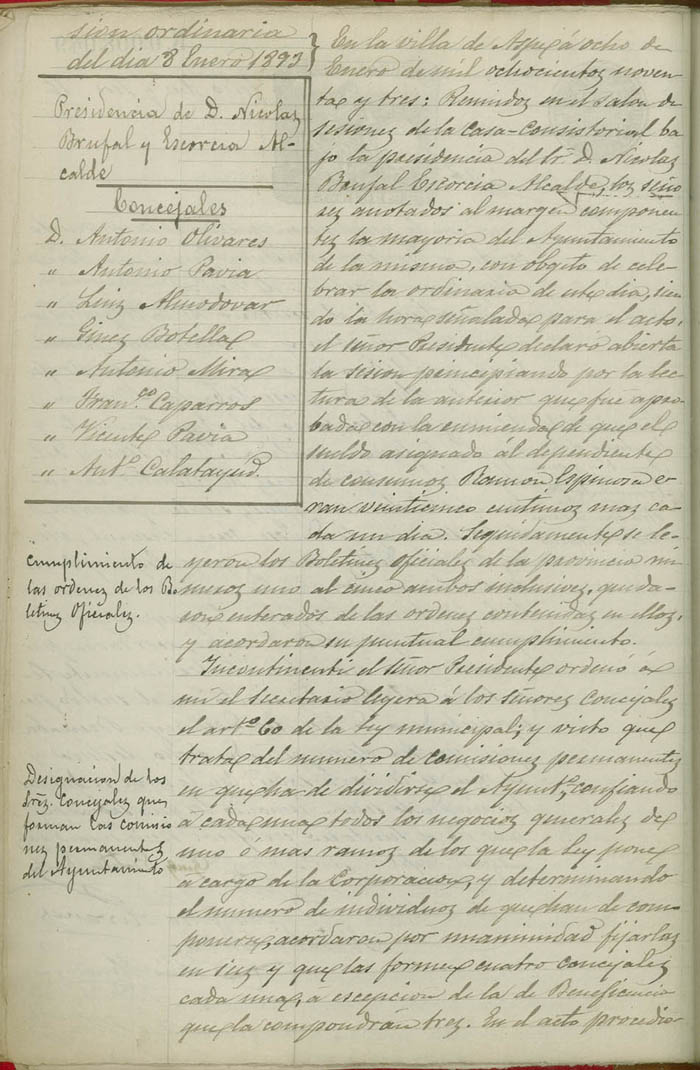 sion ordinaria
del dia 8 Enero 1893
Presidencia de D. Nicolas
Brufal y Escorcia Al-
calde
Concejales
D. Antonio Olivares
" Antonio Pavia
" Luiz Almodovar
" Ginez Botella
" Antonio Mira
" Fran.co Caparros
" Vicente Pavia
" Ant.o Calatayud.
En la villa de Aspe á ocho de
Enero de mil ochocientos noven
ta y tres: Reunidoz en el salon de
sesionez de la casa-Consistorial ba
jo la presidencia del Sr. D. Nicolaz
Brufal Escorcia Alcalde, los seño
rez anotados al margen componen
tez la mayoria del Ayuntamiento
de la misma, con obgeto de cele-
brar la ordinaria de este dia, sien
do la hora señalada para el acto,
el señor Presidente declaró abierta
la sesion principiando por la lec
tura de la anterior que fue apro
bada con la enmienda de que el
sueldo asignado ál dependiente
de consumoz Ramon Espinosa e
ran veinticinco centimoz maz ca
da un dia. Seguidamente se le-
yeron los Boletinez oficialez de la provincia nú
meroz uno al cinco ambos inclusivez, queda-
ron enterados de las ordenez contenidaz en elloz,
y acordaron su puntual cumplimiento.
Cumplimiento de
las ordenez de los Bo
letinez Oficialez.
Incontinenti el señor Presidente ordenó á
mi el Secretario leyera á los señorez Concejalez
el art.o 60 de la ley municipal; y visto que
trata del numero de comisionez permanentez
en que ha de dividirse el Ayunt.o, confiando
á cada una todos los negocios generalez de
uno ó mas ramoz de los que la ley pone
a cargo de la Corporacion, y determinando
el numero de individuoz de que han de com-
ponerse, acordaron por unanimidad fijarlaz
en seiz y que las formen cuatro concejalez
cada una, a escepcion de la de Beneficencia
que la compondrán trez. En el acto procedio
Designacion de los
Srez. Concejalez que
forman las comisio
nez permanentez
del Ayuntamiento